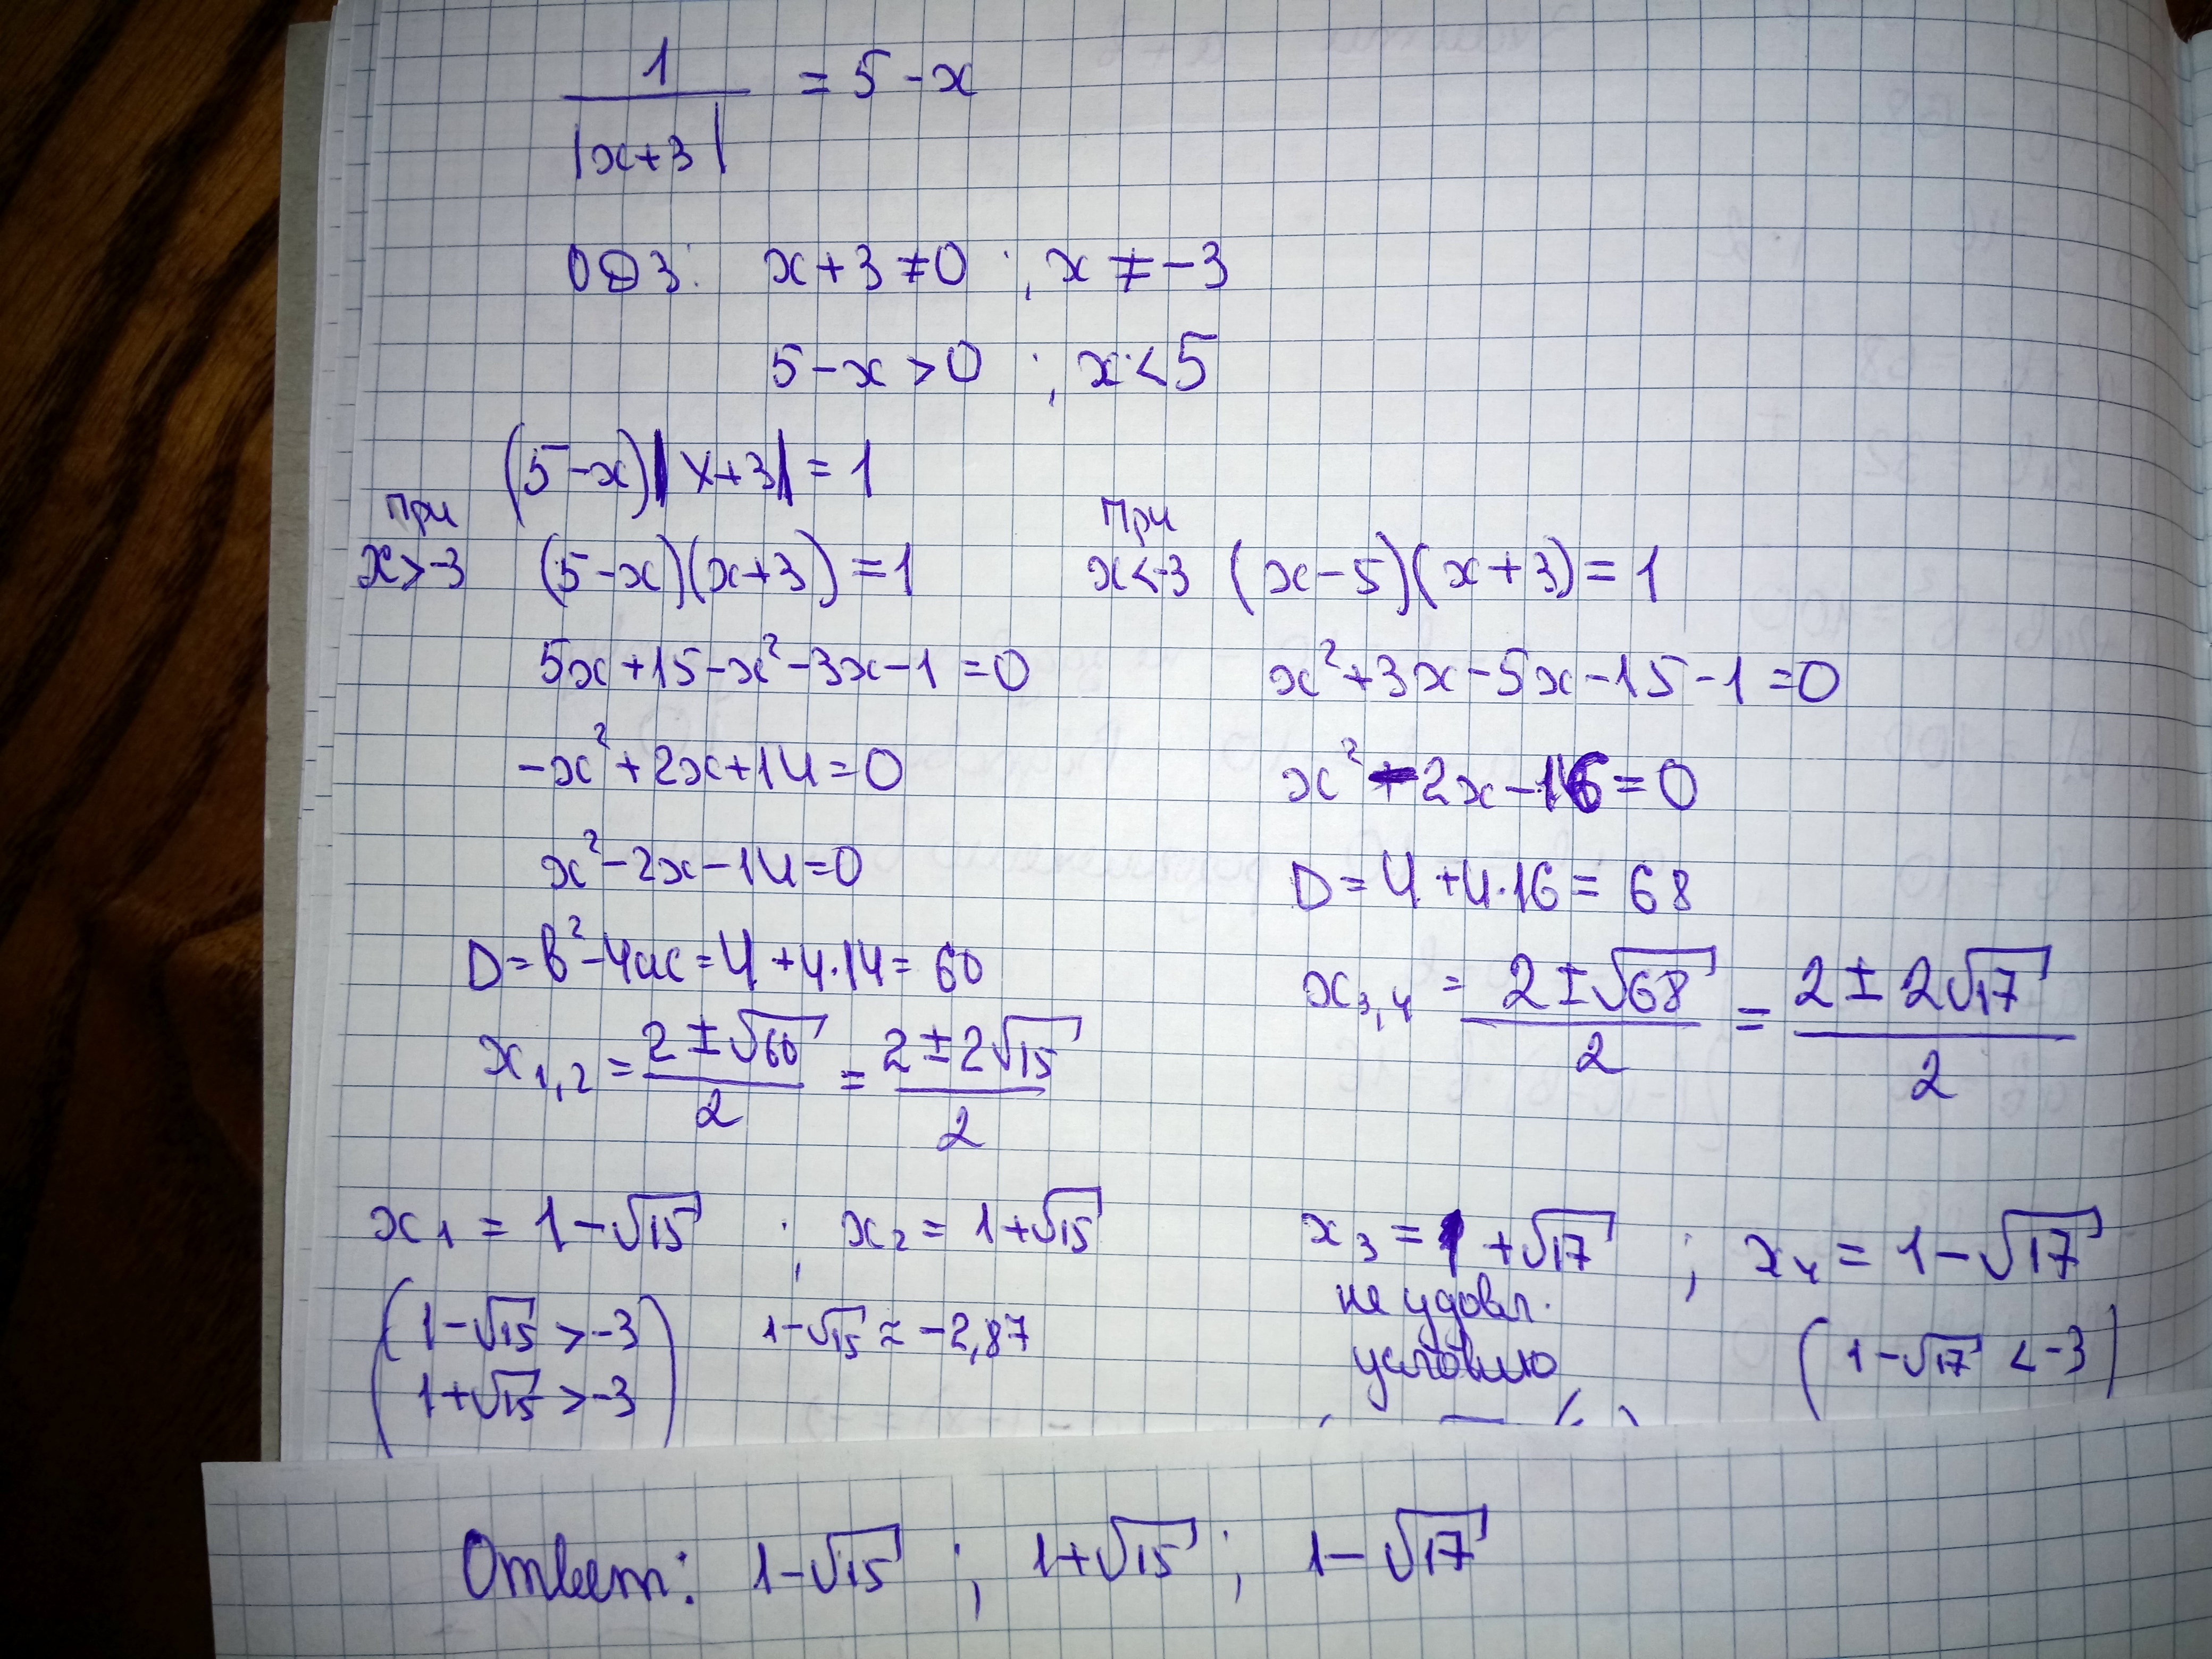 1/|x+3| = 5-x
ОДЗ: x+3≠0 ; x≠-3
5-x>0 ; x<5
(5-x)|x+3|=1
При x>-3 (5-x)(x+3)=1
5x+15-x²-3x-1=0
-x²+2x+14=0
x²-2x-14=0
D=b²-4ac=4+4·14=60
x1,2 = (2±√60)/2 = (2±2√15)/2
x1 = 1-√15 ; x2 = 1+√15
(1-√15>-3 1-√15≈-2,87
1+√15>-3)
При x<-3 (x-5)(x+3)=1
x²+3x-5x-15-1=0
x²-2x-16=0
D=4+4·16=68
x3,4 = (2±√68)/2 = (2±2√17)/2
x3 = 1+√17 ; x4 = 1-√17
не удовл. (1-√17<-3)
условию
Ответ: 1-√15 ; 1+√15 ; 1-√17